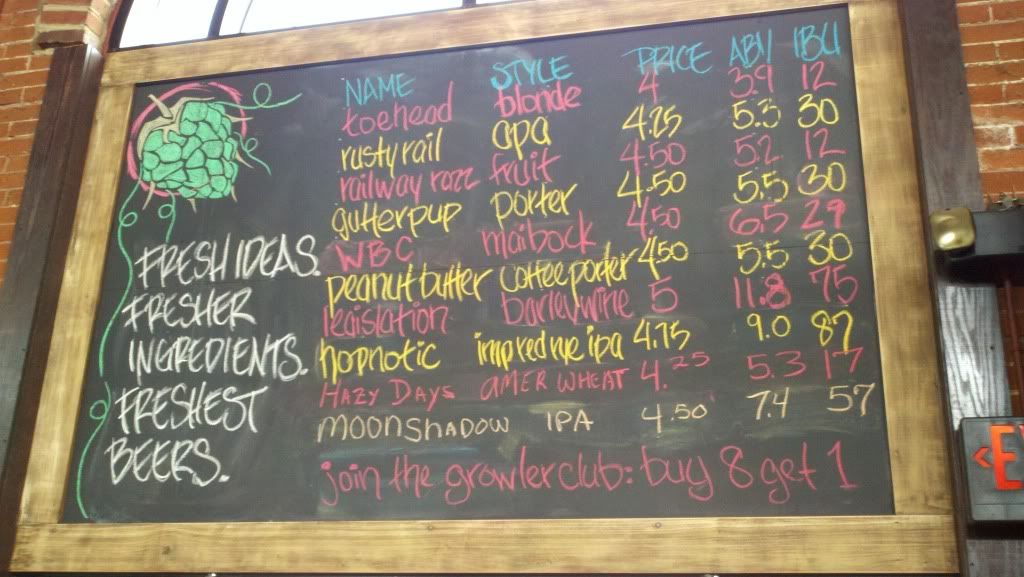 NAME STYLE PRICE ABV IBU
toehead blonde 4 3.9 12
rusty rail apa 4.25 5.3 30
railway razz fruit 4.50 5.2 12
gutterpup porter 4.50 5.5 30
WBC maibock 4.50 6.5 29
peanut butter coffee porter 4.50 5.5 30
legislation barleywine 5 11.8 75
hopnotic imp red rye ipa 4.75 9.0 87
HAZY DAYS AMER WHEAT 4.25 5.3 17
MOONSHADOW IPA 4.50 7.4 57
join the growler club: buy 8 get 1
FRESH IDEAS.
FRESHER
INGREDIENTS.
FRESHEST
BEERS.